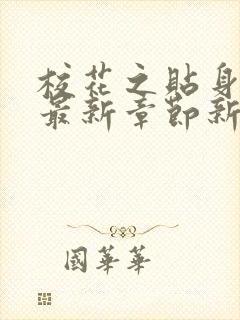 校花之貼身
最新章節新
國華華